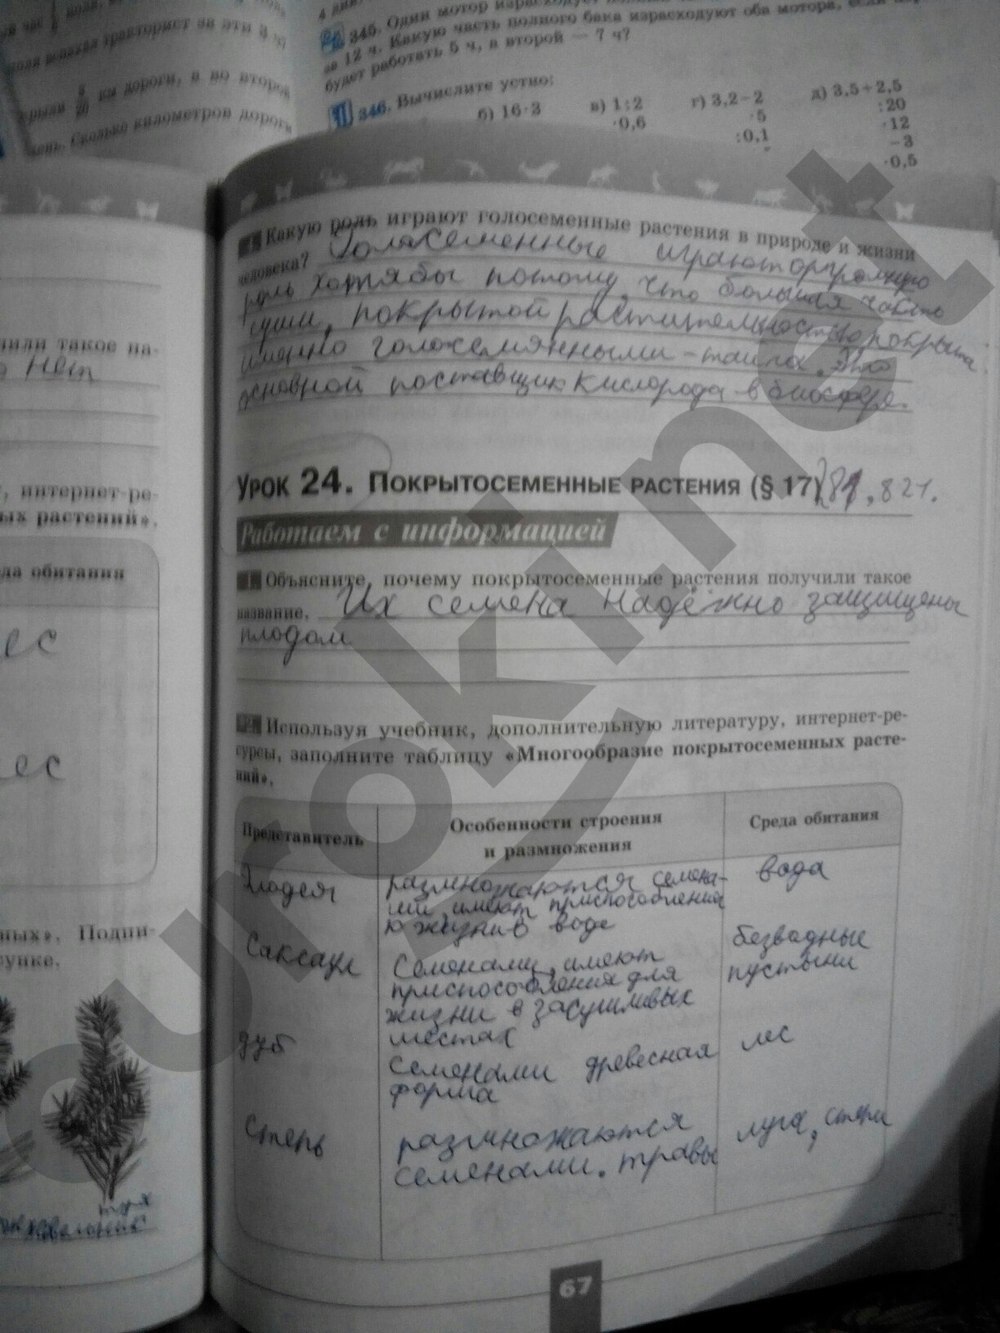 345. Один мотор
за 12 ч. Какую часть полного бака израсходуют оба мотора, если
будет работать 5 ч, а второй — 7 ч?
346. Вычислите устно:
б) 16·3
в) 1:2
·0,6
г) 3,2−2
·5
:0,1
д) 3,5+2,5
:20
·12
−3
·0,5
тракторист за эти 3 ч?
км дороги, а во второй
день. Сколько километров дороги
Какую роль играют голосеменные растения в природе и жизни
человека? Голосеменные играют огромную
роль хотябы потому, что большая часть
суши, покрытой растительностью покрыта
именно голосемянными - тайга. Это
основной поставщик кислорода в биосфере.
Урок 24. Покрытосеменные растения (§ 17)
Работаем с информацией
1 Объясните, почему покрытосеменные растения получили такое
название. Их семена надёжно защищены
плодом
2 Используя учебник, дополнительную литературу, интернет-ре-
сурсы, заполните таблицу «Многообразие покрытосеменных расте-
ний».
Представитель
Особенности строения
и размножения
Среда обитания
Элодея
размножаются семена-
ми, имеют приспособления
к жизни в воде
вода
Саксаул
Семенами, имеют
приспособления для
жизни в засушливых
местах
безводные
пустыни
дуб
Семенами древесная
форма
лес
Степь
размножаются
семенами. травы
луга, степи
67
чили такое на-
Нет
интернет-ре-
ых растений».
да обитания
ес
ес
ных». Подпи-
сунке.
туя
можжевельник
euroki.net